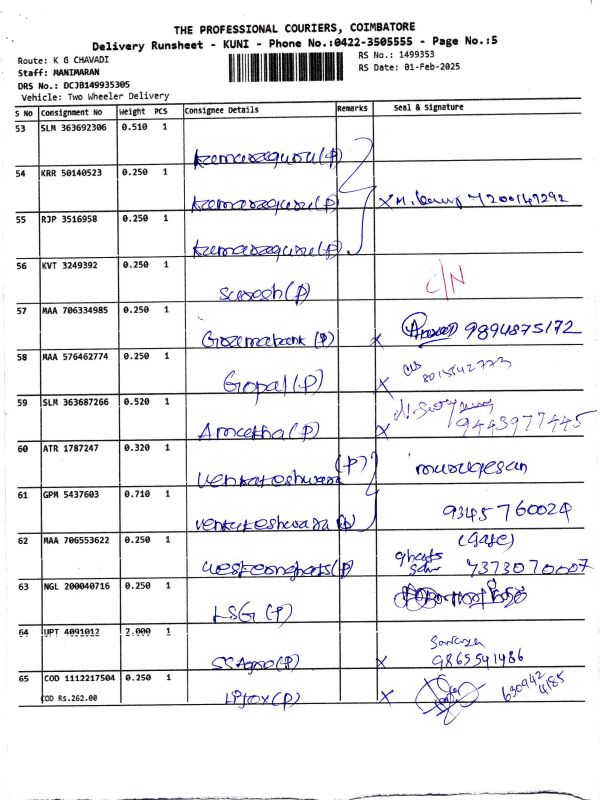 THE PROFESSIONAL COURIERS, COIMBATORE
Delivery Runsheet - KUNI - Phone No.:0422-3505555 - Page No.:5
Route: K G CHAVADI
RS No.: 1499353
Staff: MANIMARAN
RS Date: 01-Feb-2025
DRS No.: DCJB149935305
Vehicle: Two Wheeler Delivery
S No Consignment No Weight PCS Consignee Details Remarks Seal & Signature
53 SLM 363692306 0.510 1
Kumaraguru (P)
54 KRR 50140523 0.250 1
Kumaraguru (P) X M. 7200147292
55 RJP 3516958 0.250 1
Kumaraguru (P)
56 KVT 3249392 0.250 1
Suresh (P) C/N
57 MAA 706334985 0.250 1
(P) X 9894875172
58 MAA 576462774 0.250 1
Gopal (P) X 8015542773
59 SLM 363687266 0.520 1
(P) X 9443977445
60 ATR 1787247 0.320 1
Venkateshwara (P) murugesan
61 GPM 5437603 0.710 1
Venkateshwara (P) 9345760024
62 MAA 706553622 0.250 1
westernghats (P) ghats (Gate) 7373070007
63 NGL 200040716 0.250 1
LSG (P)
64 UPT 4091012 2.000 1
SS Agro (P) X 9865541486
65 COD 1112217504 0.250 1
COD Rs.262.00
(P) X 630942 4185